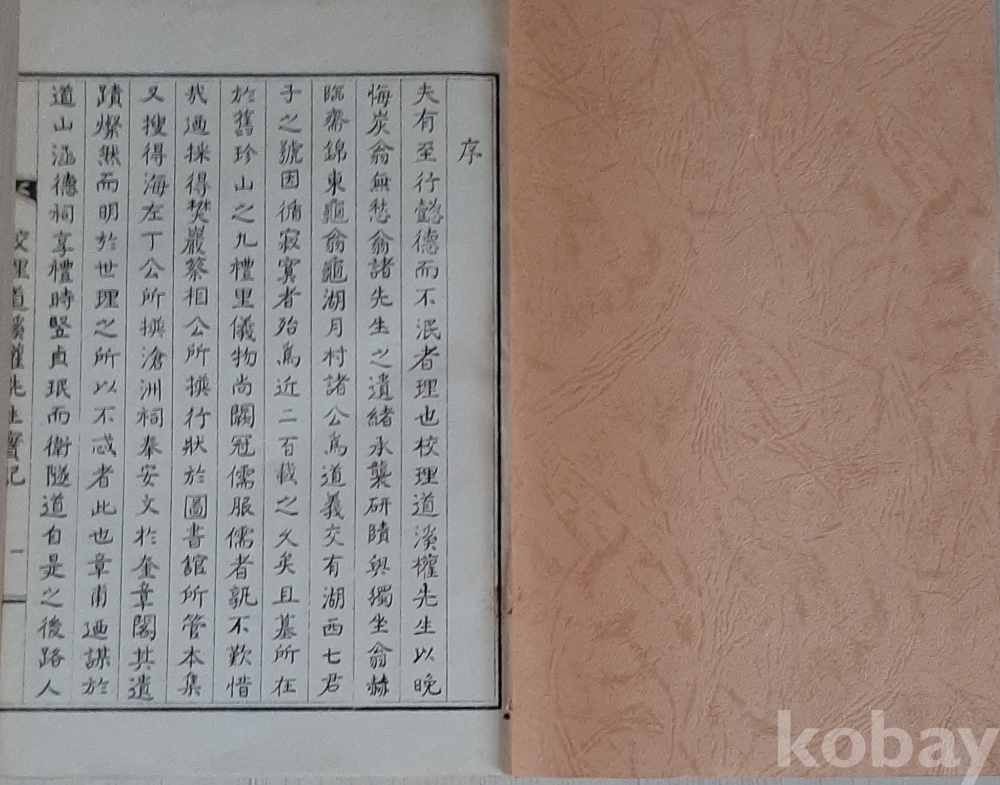 序
夫有至行懿德而不泯者理也校理道溪權先生以晚
悔炭翁無愁翁諸先生之遺緒承襲研賾與獨坐翁赫
臨齋錦東龜翁龜湖月村諸公爲道義交有湖西七君
子之號因循寂寞者殆爲近二百載之久矣且墓所在
於舊珍山之九禮里儀物尚闕冠儒服儒者孰不歎惜
哉迺採得樊巖蔡相公所撰行狀於圖書館所管本集
又搜得海左丁公所撰滄洲祠奉安文於奎章閣其遺
蹟燦然而明於世理之所以不忒者此也章甫迺謀於
道山涵德祠享禮時竪貞珉而衛隧道自是之後路人
校理道溪權先生實記 一
kobay